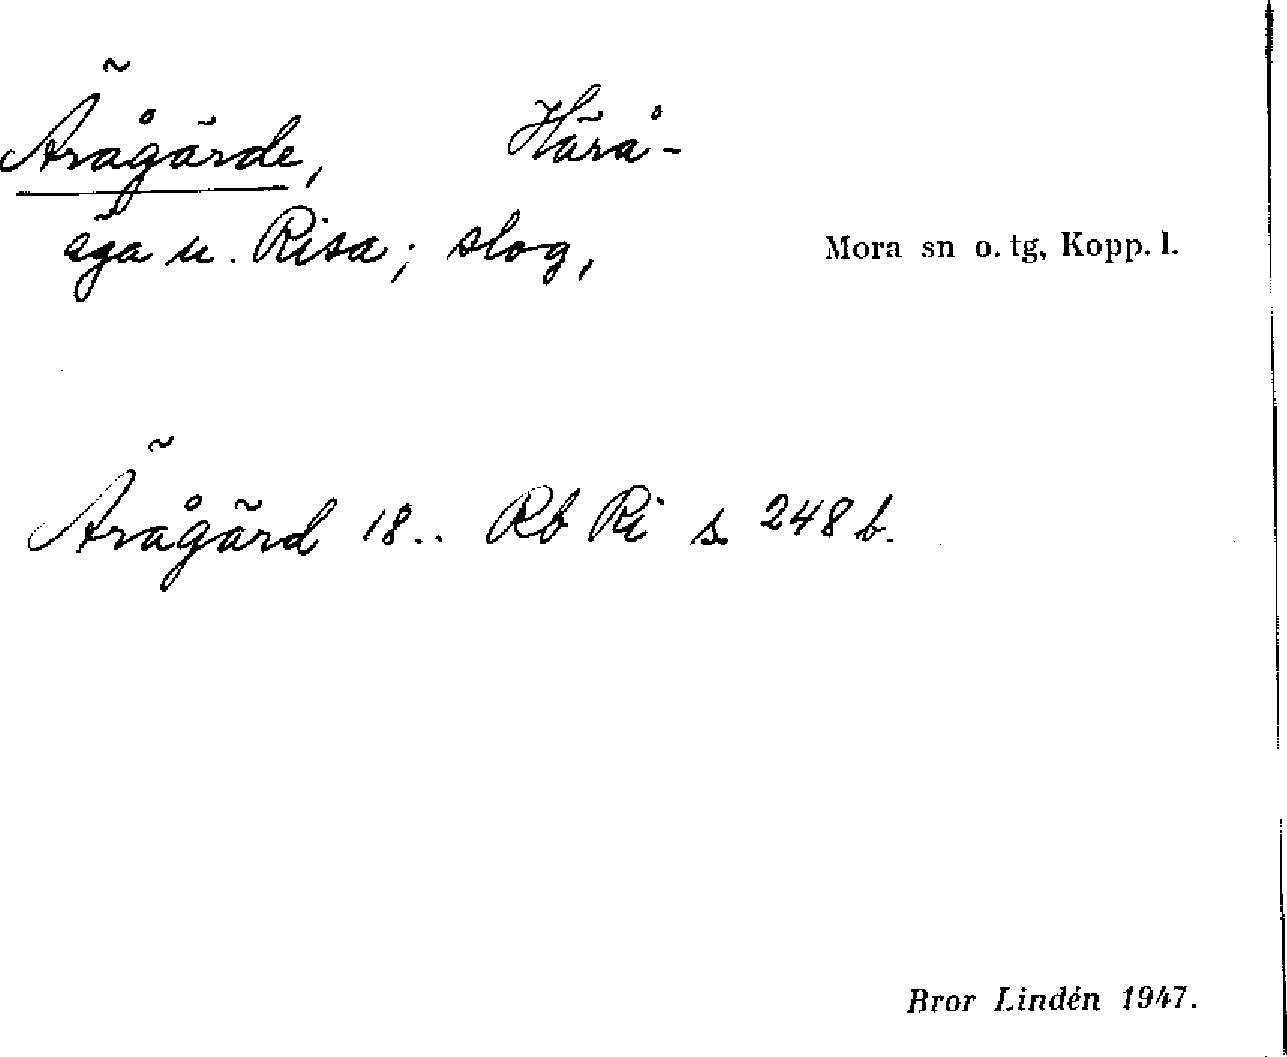 Ärågärde, Härå-
äga u. Risa; slog,
Mora sn o. tg, Kopp. l.
Ärågärd 18.. Rb Ri s. 248 b.
Bror Lindén 1947.